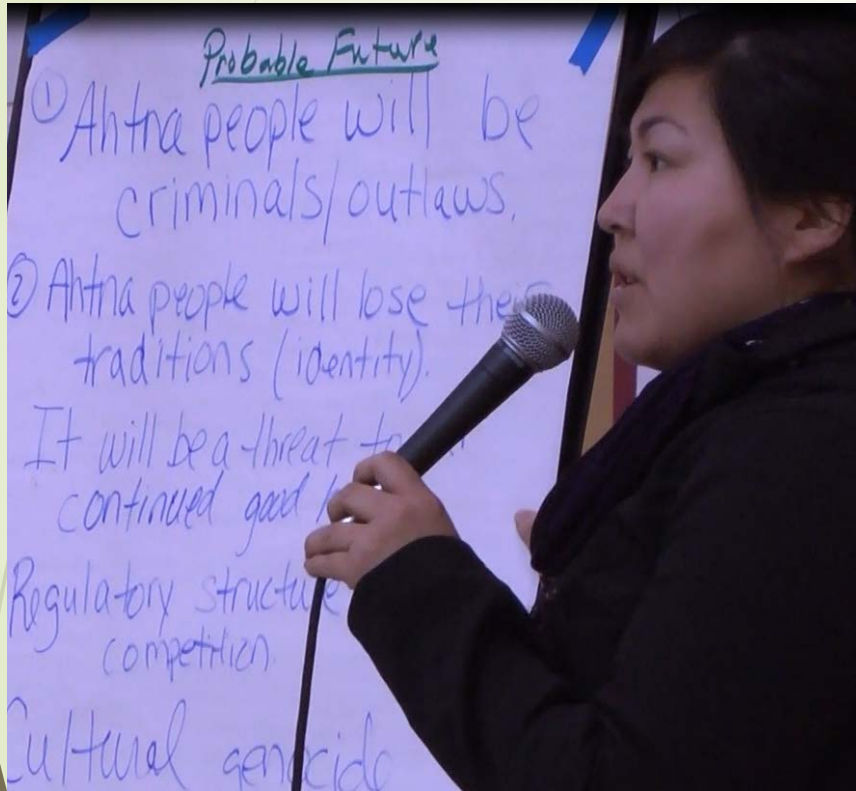 Probable Future
① Ahtna people will be
criminals/outlaws.
② Ahtna people will lose their
traditions (identity).
It will be a threat to
continued good
Regulatory structure
competition.
Cultural genocide